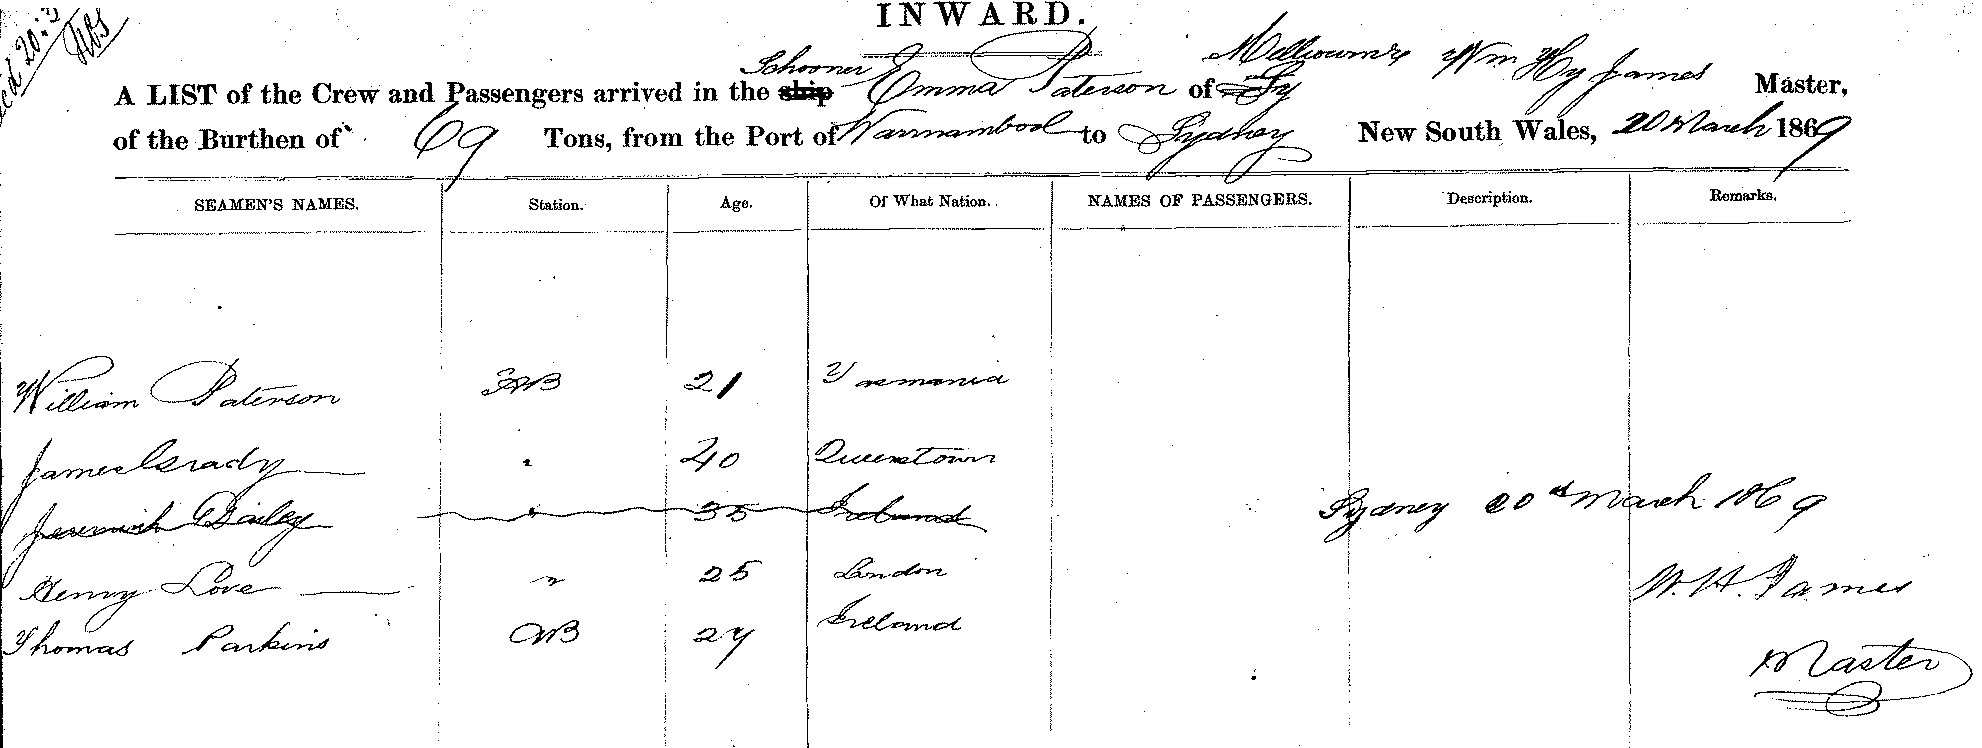 INWARD.
Schooner Melbourne Wm Hy James
A LIST of the Crew and Passengers arrived in the ship Emma Paterson of Sy Master,
of the Burthen of 69 Tons, from the Port of Warrnambool to Sydney New South Wales, 20 March 1869
SEAMEN'S NAMES. Station. Age. Of What Nation. NAMES OF PASSENGERS. Description. Remarks.
William Paterson AB 21 Tasmania
James Grady " 40 Queenstown
Jeremiah Dailey " 35 Ireland
Sydney 20th March 1869
Henry Love " 25 London
W. H. James
Thomas Parkins AB 27 Ireland
Master